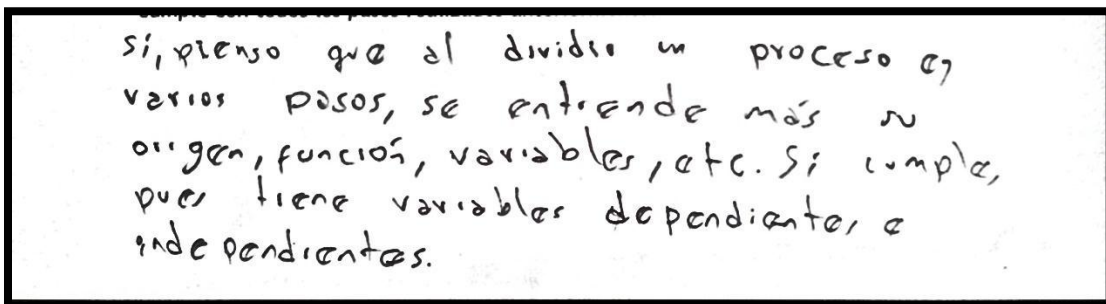 Sí, pienso que al dividir un proceso en
varios pasos, se entiende más su
origen, función, variables, etc. Sí cumple,
pues tiene variables dependientes e
independientes.